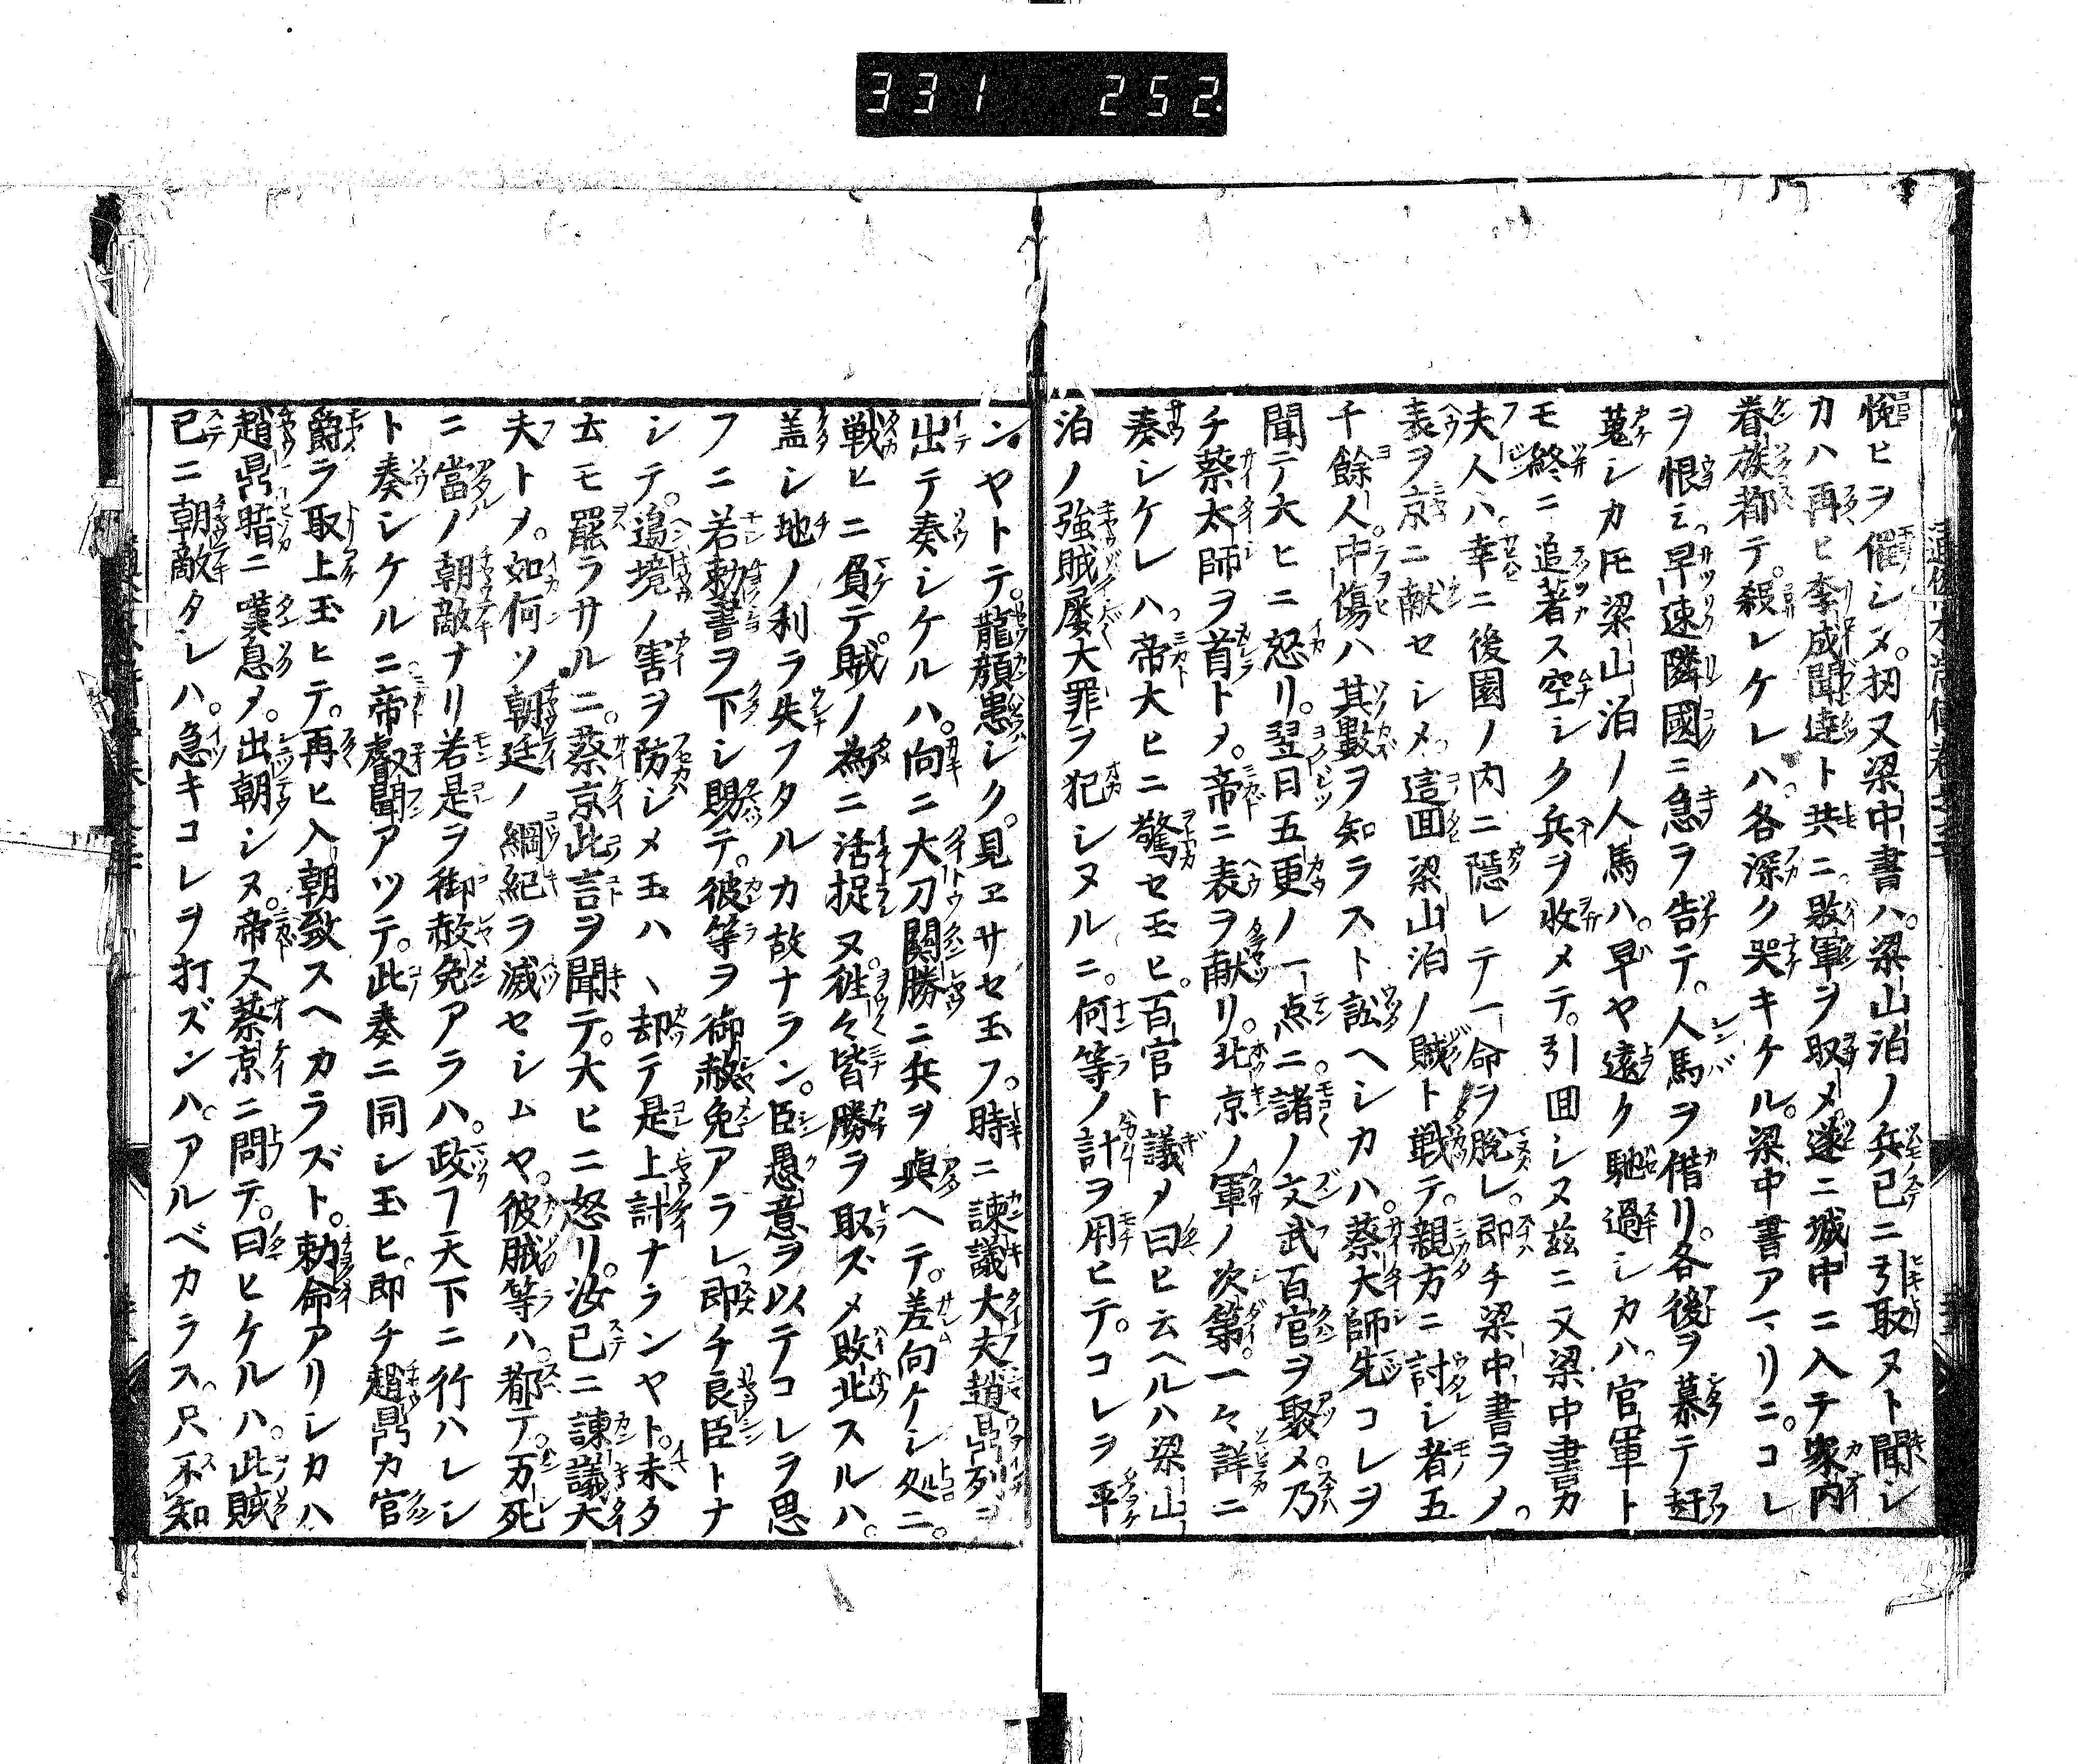 331 252
悦ヒヲ催シヌ。扨又梁中書ハ。梁山泊ノ兵已ニ引取ヌト聞シ
カハ再ヒ李成聞達ト共ニ敗軍ヲ取メ。遂ニ城中ニ入テ家内
眷族都テ。殺レケレハ。各深ク哭キケル。梁中書アマリニ。コレ
ヲ恨ミ早速隣國ニ急ヲ告テ。人馬ヲ借リ。各後ヲ慕テ赶
蒐シカ𪜈梁山泊ノ人馬ハ。早ヤ遠ク馳過シカハ。官軍ト
モ終ニ追著ス空シク兵ヲ收メテ。引囬シヌ茲ニ又梁中書カ
夫人ハ。幸ニ後園ノ内ニ隠レテ一命ヲ脱レ。即チ梁中書ラメ。
表ヲ京ニ献セシメ。這囬梁山泊ノ賊ト戦テ。親方ニ討レシ者五
千餘人。中傷ハ其數ヲ知ラスト訟ヘシカハ。蔡大師先コレヲ
聞テ大ヒニ怒リ。翌日五更ノ一点ニ。諸ノ文武百官ヲ聚メ。乃
チ蔡太師ヲ首トメ。帝ニ表ヲ献リ。北京ノ軍ノ次第。一々詳ニ
奏シケレハ。帝大ヒニ驚セ玉ヒ。百官ト議メ曰ヒ云ヘルハ梁山
泊ノ強賊屡大罪ヲ犯シヌルニ。何等ノ計ヲ用ヒテ。コレラ平
ンヤトテ。龍顔患シク。見ヱサセ玉フ。時ニ諫議大夫趙鼎列ヲ
出テ奏シケルハ。向ニ大刀關勝ニ兵ヲ與ヘテ。差向ケシ処ニ。
戦ヒニ負テ。賊ノ為ニ活捉ヌ。徃々皆勝ヲ取ズメ敗北スルハ。
盖シ地ノ利ラ失フタルカ故ナラン。臣愚意ヲ以テコレラ思
フニ若勅書ヲ下シ賜テ。彼等ヲ御赦免アラレ。即チ良臣トナ
シテ。邉境ノ害ヲ防シメ玉ハヽ却テ是上計ナランヤト。未タ
去モ罷ラサルニ。蔡京此言ヲ聞テ。大ヒニ怒リ。汝已ニ諫議大
夫トメ。如何ソ朝廷ノ綱紀ヲ滅セシムヤ。彼賊等ハ。都テ。万死
ニ當ノ朝敵ナリ若是ヲ御赦免アラハ。政ヿ天下ニ行ハレシ
ト奏シケルニ帝叡聞アツテ。此奏ニ同シ玉ヒ。即チ趙鼎カ官
爵ラ取上玉ヒテ。再ヒ入朝致スヘカラズト。勅命アリシカハ
趙鼎暗ニ嘆息メ。出朝シヌ。帝又蔡京ニ問テ。曰ヒケルハ。此賊
已ニ朝敵タレハ。急キコレヲ打ズンハ。アルベカラス。只不知